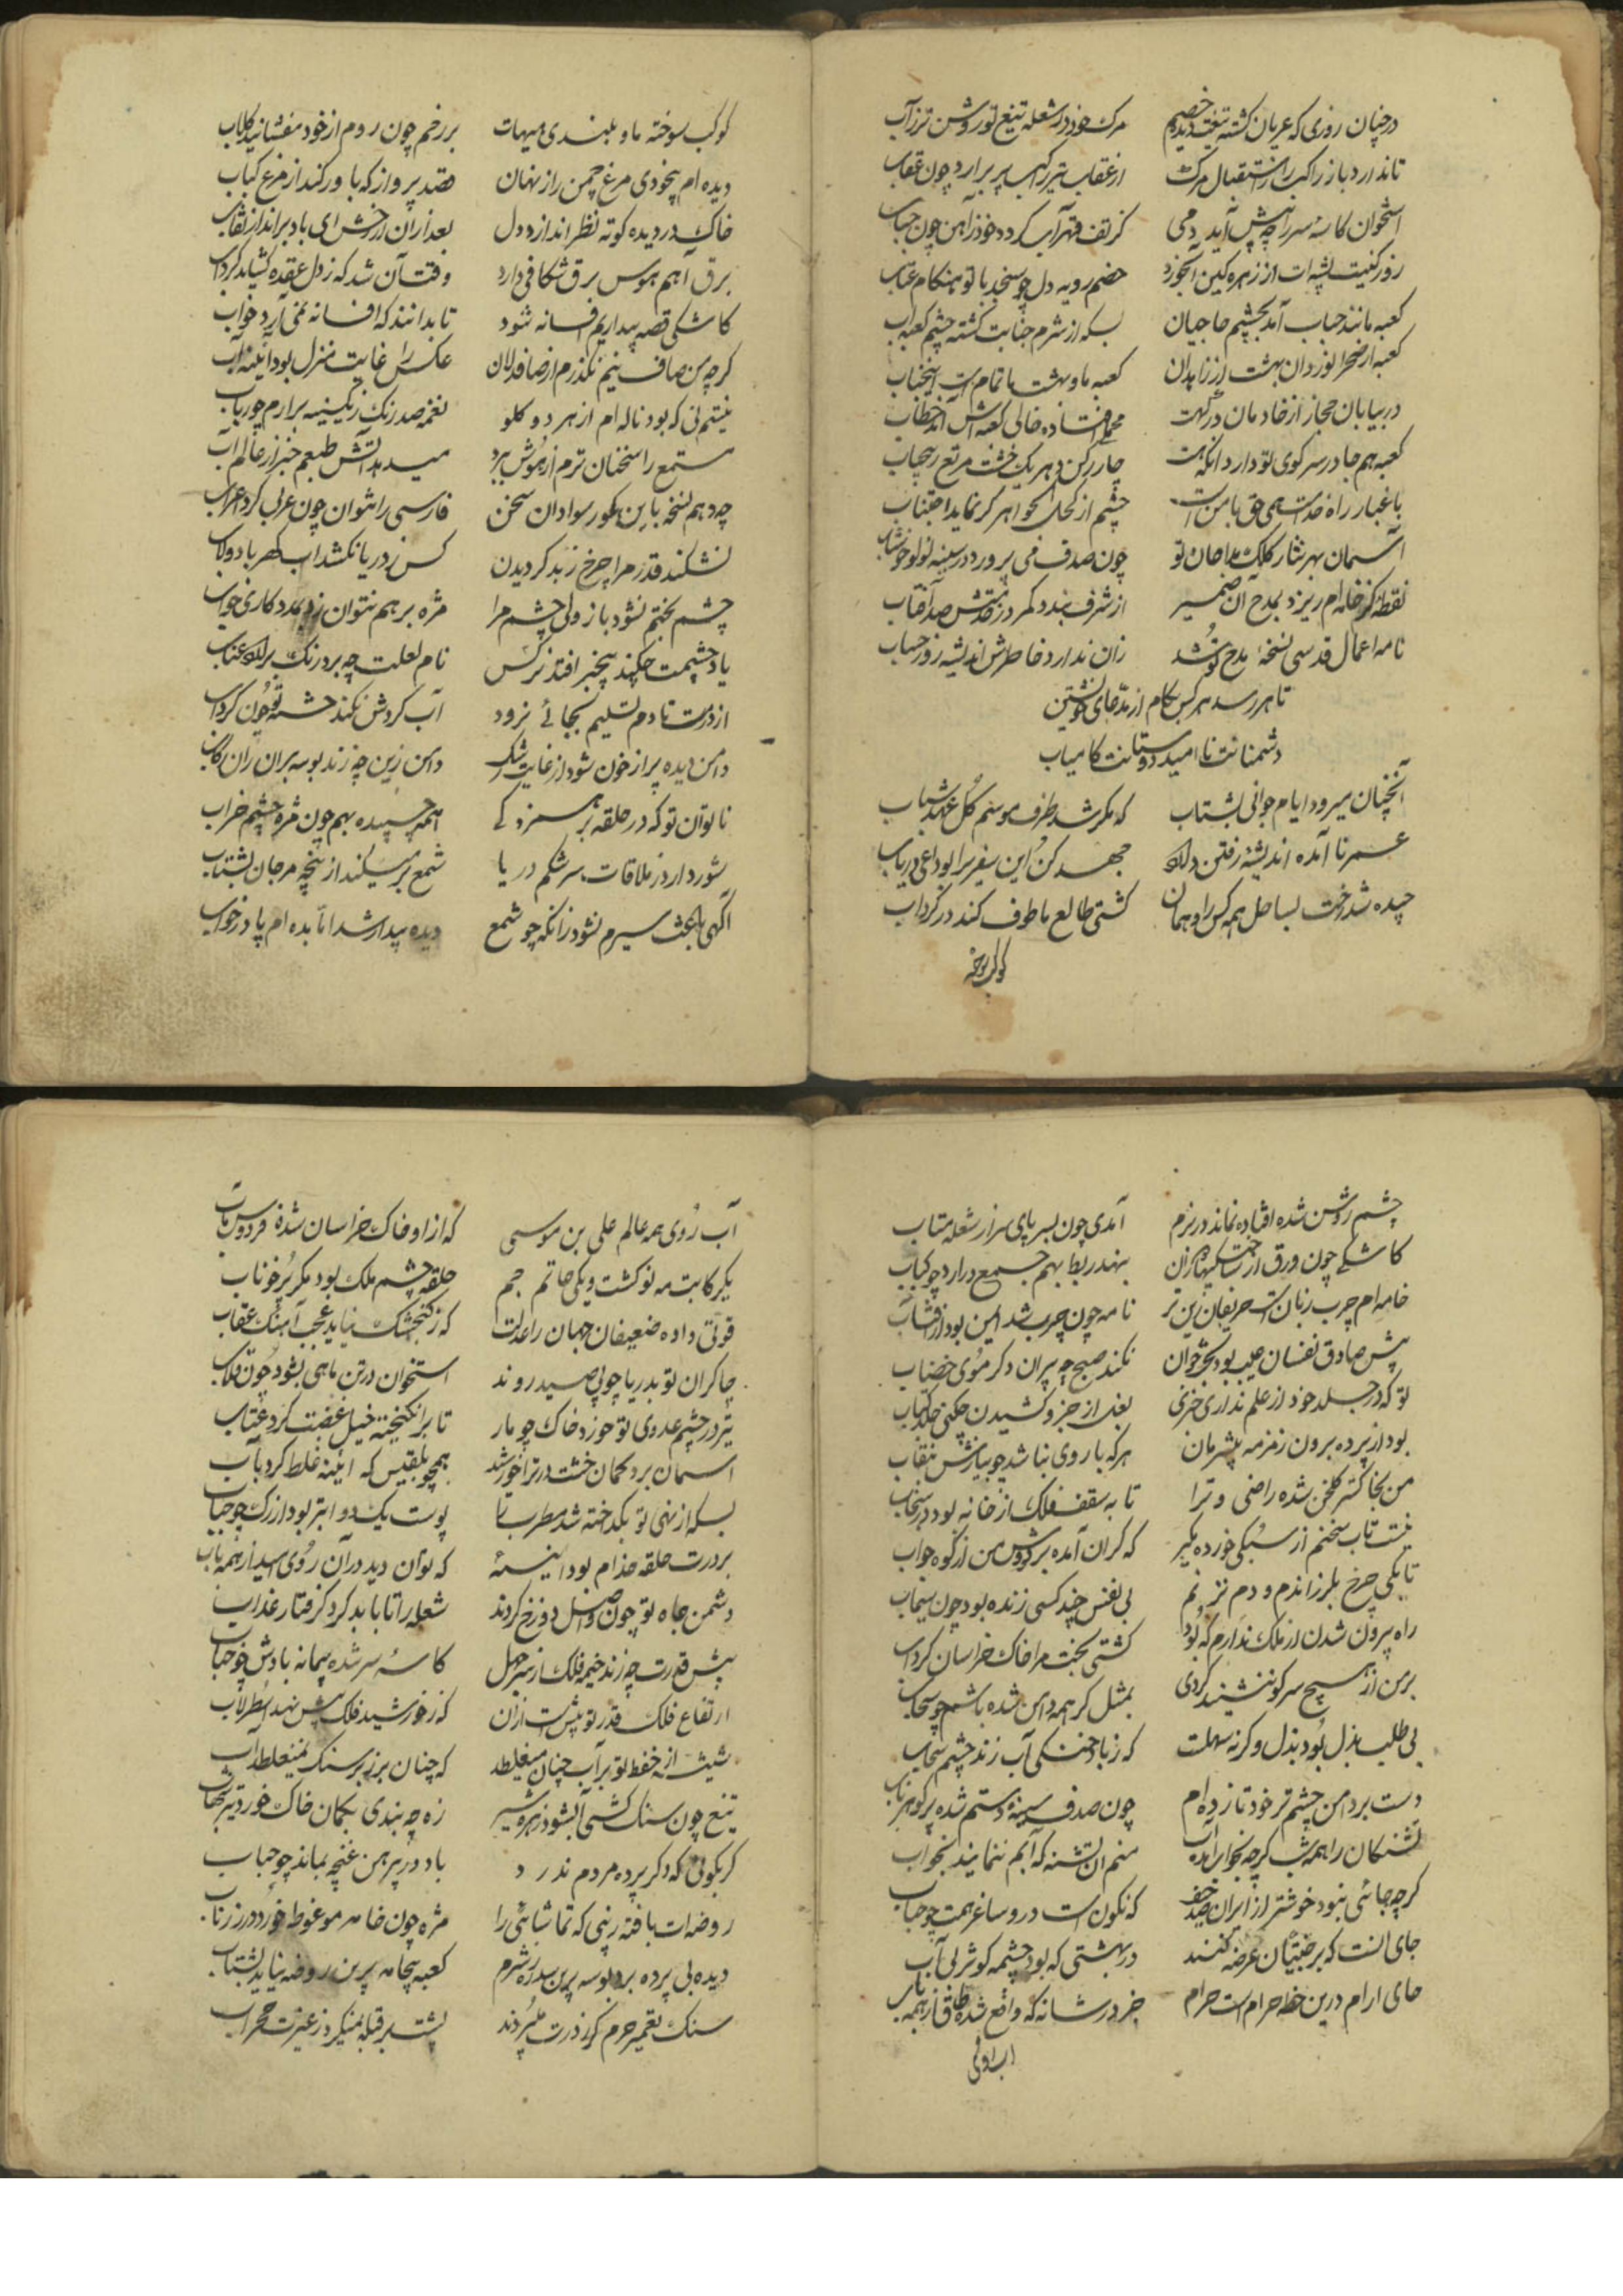 در چنان روزی که عریان کشته تیغت دیده خصم مرک خود در شعله تیغ تو روشن تر ز آب
تا ندارد باز راکب را ز استقبال مرک از عقاب تیر ترکیب پر برارد چون عقاب
استخوان کاسه سر را چه پیش آید دمی کز تف قهر آب کردد خود ز آهن چون حباب
روز کینت پشه ات از زهره کین آبخورد خصم روبه دل چو سنجد با تو هنکام عتاب
کعبه مانند حباب آمد بچشم حاجیان بسکه از شرم جنابت کشته چشم کعبه آب
کعبه از صحرا نوردان بهشت از زاهدان کعبه ما و بهشت ما تمام است اینجناب
در بیابان حجاز از خادمان درکهت محملی افتاده خالی کعبه اش آمد خطاب
کعبه هم جا در سر کوی تو دارد آنکه هست چار رکن و هر یک خشت مربع زیجناب
با غبار راه خدامت همی حق بامن است چشم از کحل الجواهر کر نماید اجتناب
آسمان بهر نثار کلک مداحان تو چون صدف می پرورد در سینه لولو خوشاب
نقطه کز خامه ام ریزد بمدح آن ضمیر از شرف بندد کمر در خدمتش صد آفتاب
نامه اعمال قدسی نسخه مدح تو شد زان ندارد خاطرش اندیشه روز حساب
تا هر رسد هر کس بکام از مدعای خویشتن
دشمنانت نا امید و دوستانت کامیاب
آنچنان میرود ایام جوانی بشتاب که مکر شد طرف موسم کل عهد شباب
عمر نا آمده اندیشه رفتن دارد جهد کن این سفری را بوداعی دریاب
چیده شد رخت بساحل همه کس را و همان کشتی طالع ما طوف کند در کرداب
کوکب سوخته
کوکب سوخته ما و بلندی هیهات بر رخم چون روم از خود مفشانید کلاب
دیده ام بیخودی مرغ چمن راز نهان قصد پرواز که باور کند از مرغ کباب
خاک در دیده کوته نظر اندازد دل بعد از آن از رخش ای باد برانداز نقاب
برق آهم هوس برق شکافی دارد وقت آن شد که ز دل عقده کشاید کرداب
کاشکی قصه بیداریم افسانه شود تا بدانند که افسانه نمی آرد خواب
کرچه من صاف نیم نکذرم از صافدلان عکس را غایت منزل بود آئینه و آب
نیستم نی که بود ناله ام از هر دو کلو نغمه صد رنک ز یک سینه برارم چو رباب
مستمع را سخنان ترم از هوش برد میدهد آتش طبعم خبر از عالم آب
چه دهم نسخه باین کور سوادان سخن فارسی را نتوان چون عربی کرد اعراب
نشکند قدر مرا چرخ ز بد کردیدن کس ز دریا نکشد آب کهر با دولاب
چشم بختم نشود باز ولی چشم مرا مژه بر هم نتوان زد بمددکاری خواب
یاد چشمت چکند بیخبر افتد نرکس نام لعلت چه برد رنک برارد عناب
از درت تا دم تسلیم بجائی نرود آب کردش نکند خسته تو چون کرداب
دامن دیده پر از خون شود از غایت رشک دامن زین چه زند بوسه بران ران رکاب
ناتوان تو که در حلقه بر همزد کی آهمه چسپیده بهم چون مژه چشم خراب
شور دارد ز ملاقات سرشکم دریا شمع بر میکند از پنجه مرجان بشتاب
آکهی باعث سیرم نشود زانکه چو شمع دیده بیدار شد اما بده ام پا در خواب
چشم روشن شده افتاده نماند در بزم آمدی چون بسر پای سر از شعله متاب
کاشکی چون ورق از جنت سکیها یاران بنهد ربط بهم جمع درارد چو کتاب
خامه ام چرب زبان است حریفان زین تر نامه چون چرب شد ایمن بود از افشاب
پیش صادق نفسان عیب بود بخت جوان نکند صبح چو پیران دکر موی خضاب
تو که در جلد خود از علم نداری خبری بغل از جزو کشیدن چکنی جلد کتاب
بود از پرده برون زمزمه بیشرمان هر که با روی نباشد چه نیازش بنقاب
من بخاکستر کلخن شده راضی و ترا تا به سقف فلک از خانه بود در سنجاب
نیست تاب سخنم از سبکی خورده مکیر که کران آمده بر کوش من از کوه جواب
تا بکی چرخ بلرزاندم و دم نزنم بی نفس چند کسی زنده بود چون سیماب
راه بیرون شدن از ملک ندارم که بود کشتی بخت مرا خاک خراسان کرداب
بر من از هیچ سر کو ننشیند کردی بمثل کر همه دامن شده باشم چو سحاب
بی طلب بذل بود بذل و کر نه سهلست که ز باد خنکی آب زند چشم سحاب
دست بر دامن چشم تر خود تا زده ام چون صدف سینه و دستم شده پر کوهر ناب
تشنکان را همه شب کرچه بخواب آید آب منم آن تشنه که آبم ننمایند بخواب
کرچه جائی نبود خوشتر از ایران صد حیف که نکون است درو ساغر همت چو حباب
جای آنست که بر جنتیان عرضه کنند در بهشتی که بود چشمه کوثر بی آب
جای آرام درین خطه حرام است حرام جز در شانه که واقع شده طاق از همه باب
آب روی
آب روی همه عالم علی بن موسی که از او خاک خراسان شده فردوس مآب
یک رکابت مه نو کشت و یکی خاتم جم حلقه چشم ملک بود مکر پر خوناب
قوتی داده ضعیفان جهان را عدلت که ز کنجشک نیاید عجب آهنک عقاب
چاکران تو بدریا چو پی صید روند استخوان در تن ماهی بشود چون قلاب
تیر در چشم عدوی تو خورد خاک چو مار تا برانکیخته خیل غضبت کرد عتاب
آسمان برد کمان خشت درت را خورشید همچو بلقیس که آئینه غلط کرد بآب
بسکه از نهی تو بکداخته شد مطرب را پوست یک دو ابتر بود از رک چو حباب
بر درت حلقه خدام بود آئینه که توان دید در آن روی امید از همه باب
دشمن جاه تو چون واصل دوزخ کردند شعله را تا بابد کرد کرفتار عذاب
پیش قدرت چه زند خیمه فلک از سر جهل کاسه سر شده پیمانه بادش چو حباب
ارتفاع فلک قدر تو بیش است از آن که ز خورشید فلک پیش نهد اسطرلاب
شیشه از حفظ تو بر آب چنان میغلطد که چنان بر زبر سنک نمیغلطد آب
تیغ چون سنک کشی آب شود زهره شیر زه چه بندی بکمان خاک خورد تیر شهاب
کر بکوئی که دکر پرده مردم ندرد باد در پیرهن غنچه بماند چو حباب
روضه ات یافته زینی که تماشائی را مژه چون خامه مو غوطه خورد در زر ناب
دیده بی پرده برد بوسه برین سدره ز شرم کعبه بیجامه برین روضه نیاید بشتاب
سنک تعمیر حرم کر ز درت میبردند پشت بر قبله نمیکرد ز غیرت محراب